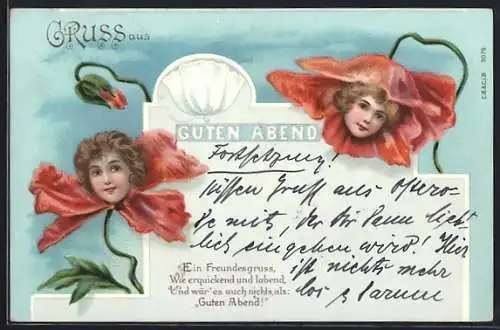 GRUSS aus
E.S.A.C.i.B 3075
GUTEN ABEND
Fortsetzung!
süssen Gruß aus Ostero-
de mit, der Dir dann lieb-
lich eingehen wird! Hier
ist nichts mehr
los
Ein Freundesgruss,
Wie erquickend und labend,
Und wär' es auch nichts, als:
„Guten Abend!"